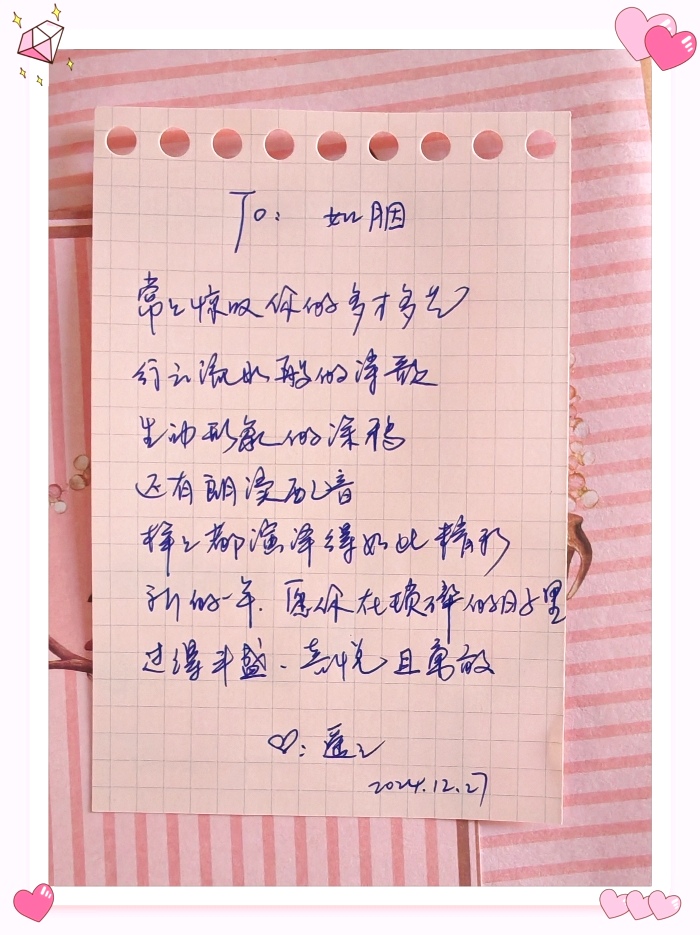 To: 如胭
常々惊叹你的多才多艺
行云流水般的诗歌
生动形象的涂鸦
还有朗读配音
样々都演泽得如此精彩
新的一年.愿你在琐碎的日子里
过得丰盛、喜悦且勇敢
♡:遥々
2024.12.27